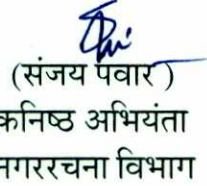 (संजय पवार )
कनिष्ठ अभियंता
नगररचना विभाग